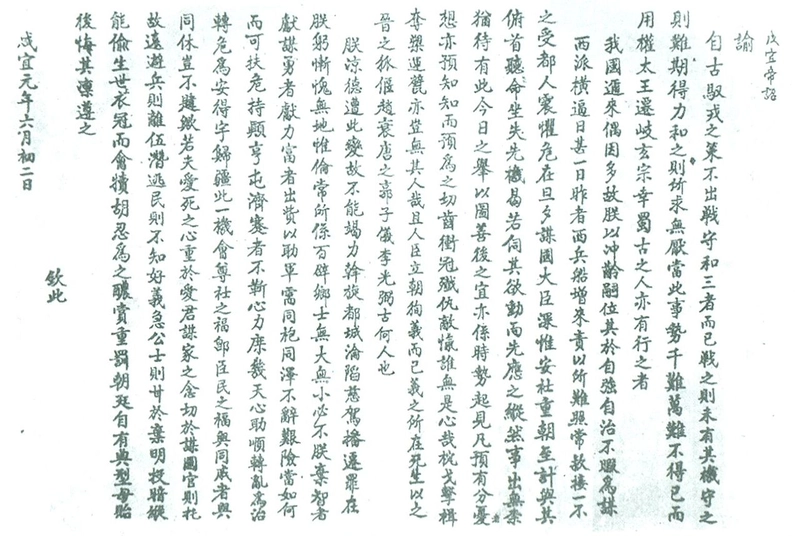 咸宜帝詔
諭
自古馭戎之策不出戰守和三者而已戰之則未有其機守之
則難期得力和之則所求無厭當此事勢千難萬難不得已而
用權太王遷岐玄宗幸蜀古之人亦有行之者
我國邇來偶因多故朕以沖齡嗣位其於自強自治不暇爲謀
西派橫逼日甚一日昨者西兵船增來責以所難照常款接一不
之受都人震懼危在旦夕謀國大臣深惟安社重朝至計與其
俯首聽命坐失先機曷若伺其欲動而先應之縱然事出無柰
猶待有此今日之舉以圖善後之宜亦係時勢起見凡預有分憂
想亦預知知而預爲之切齒衝冠殲仇敵愾誰無是心哉枕戈擊楫
奪槊運甓亦豈無其人哉且人臣立朝徇義而已義之所在死生以之
晉之狐偃趙衰唐之郭子儀李光弼古何人也
朕涼德遭此變故不能竭力斡旋都城淪陷慈駕播遷罪在
朕躬慚愧無地惟倫常所係百辟鄉士無大無小必不朕棄智者
獻謀勇者獻力富者出貲以助軍需同袍同澤不辭艱險當如何
而可扶危持顛亨屯濟蹇者不靳心力庶幾天心助順轉亂爲治
轉危爲安得宇歸疆此一機會尊社之福即臣民之福與同戚者與
同休豈不韙歟若夫愛死之心重於愛君謀家之念切於謀國官則托
故遠避兵則離伍潛逃民則不知好義急公士則甘於棄明投暗縱
能偷生世衣冠而禽犢胡忍爲之醲賞重罰朝廷自有典型毋貽
後悔其凛遵之
欽此
咸宜元年六月初二日